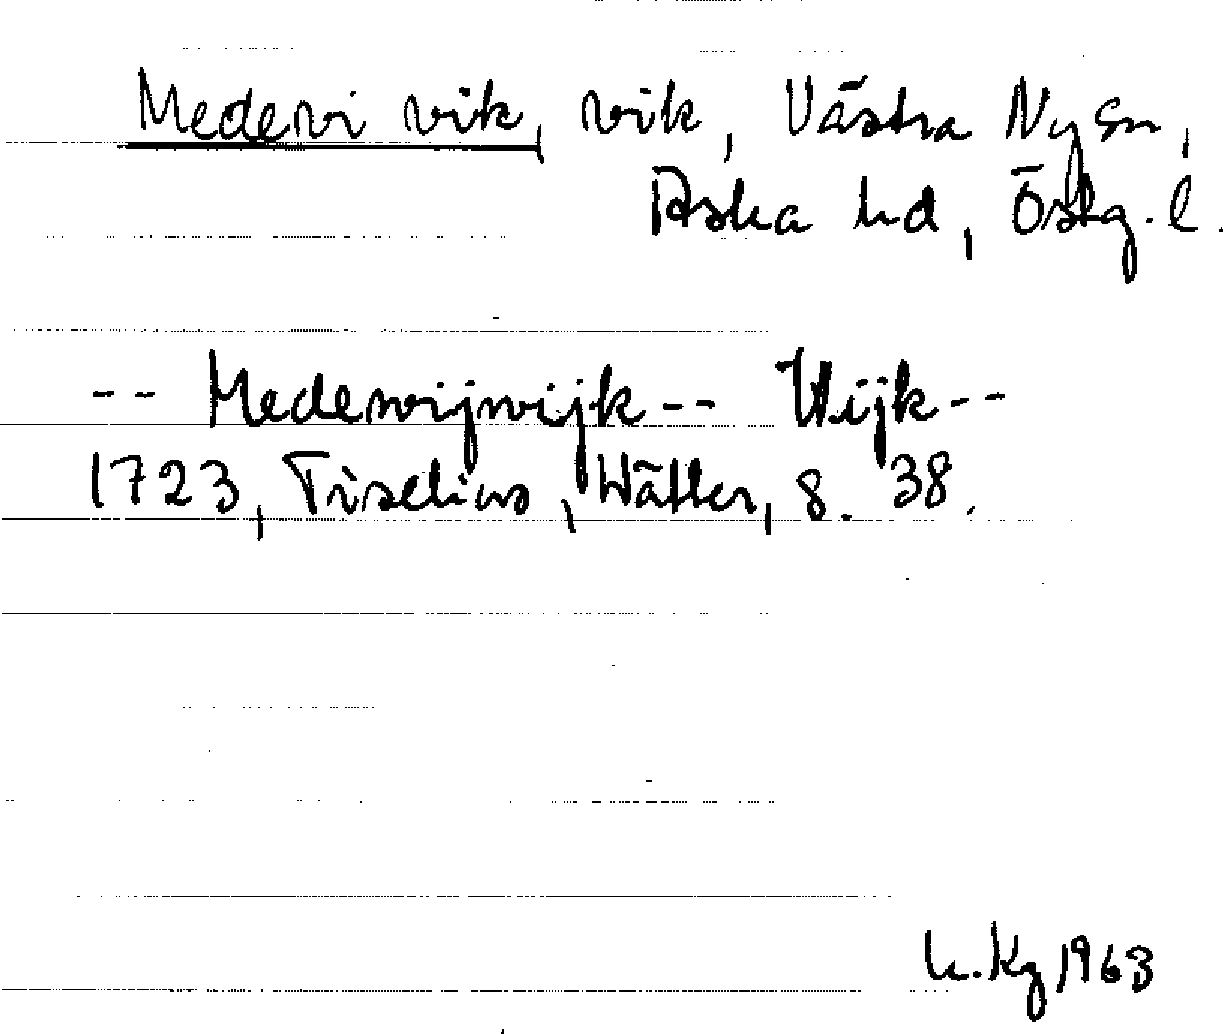 Medevi vik, vik, Västra Ny sn,
Aska hd, Östg. l.
-- Medewijwijk -- Wijk --
1723, Tiselius, Wätter, s. 38.
K. Kg 1963